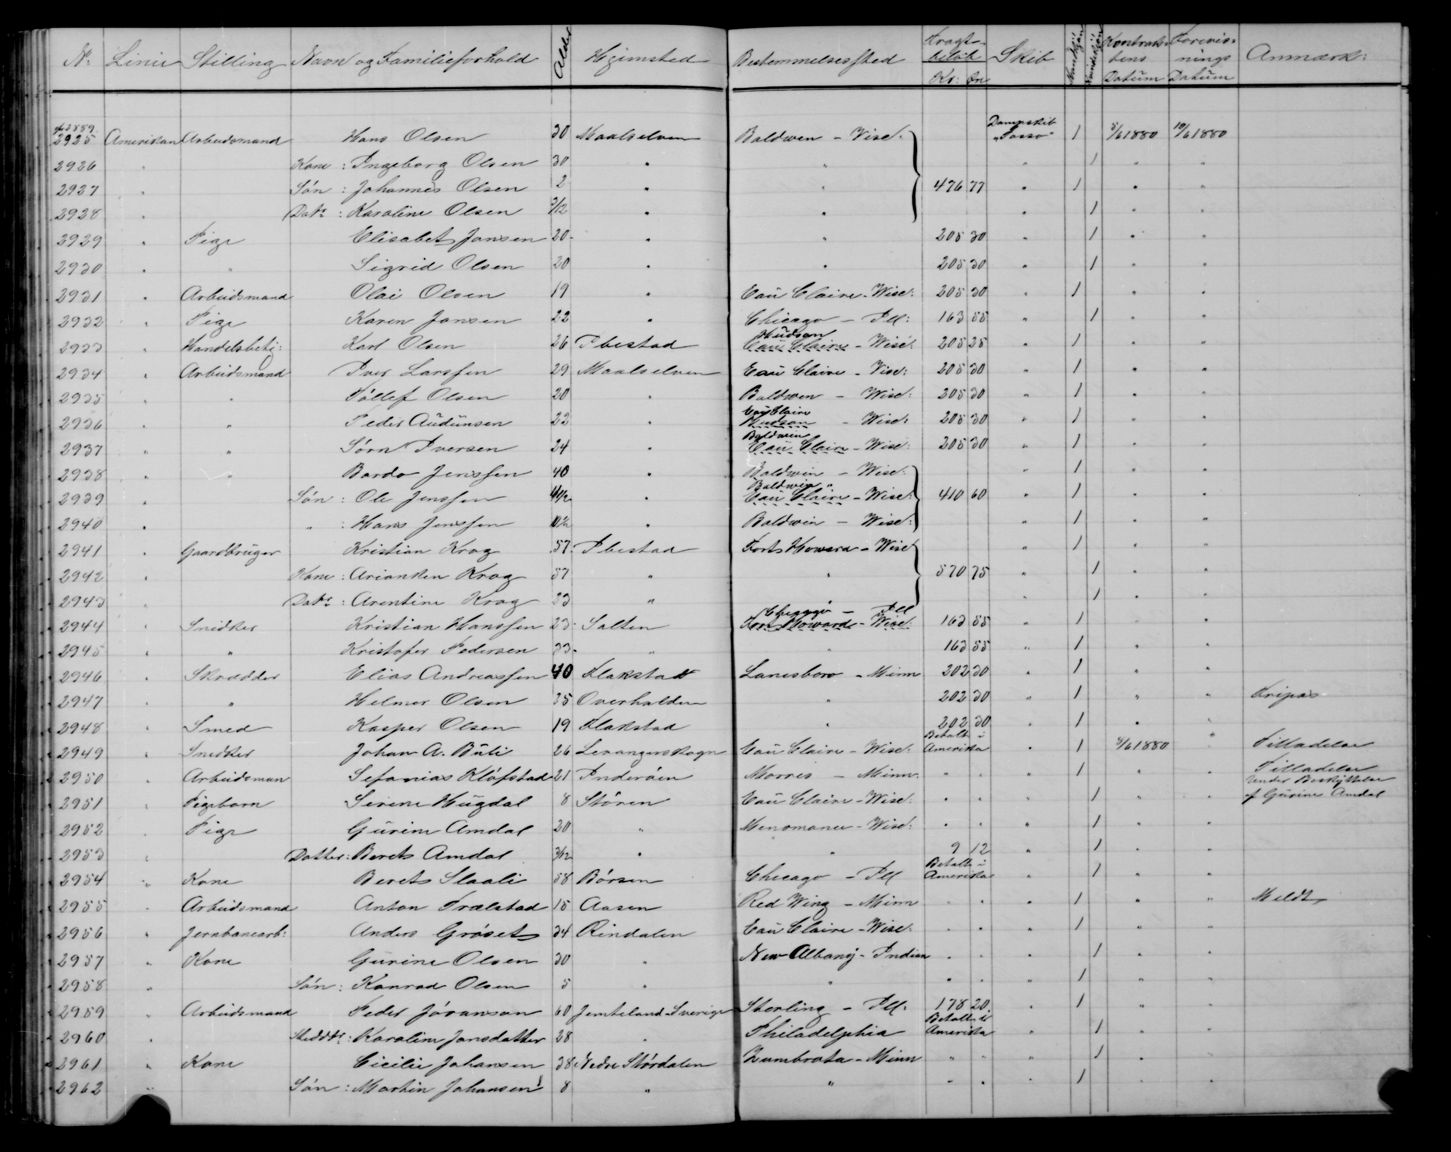 Nr. Linie Stilling Navn og Familieforhold Alder Hjemsted Bestemmelsessted Fragtbeløb Kr: Ør Skib Mandkjøn Kvindekjøn Kontraktens Datum Forevisnings Datum Anmærk:
2925 Amerikan Arbeidsmand Hans Olsen 30 Maalselven Baldwen - Wisc: Dampskib "Tasso" 1 5/6 1880 10/6 1880
2926 " Kone: Ingeborg Olsen 30 " " " 1 " "
2927 " Søn: Johannes Olsen 2 " " 476 77 " 1 " "
2928 " Datr: Karoline Olsen 3/12 " " " 1 " "
2929 " Pige Elisabet Jansen 20 " " 205 30 " 1 " "
2930 " " Sigrid Olsen 20 " " 205 30 " 1 " "
2931 " Arbeidsmand Olai Olsen 19 " Eau Claire - Wisc: 205 30 " 1 " "
2932 " Pige Karen Jansen 22 " Chicago - Ill: 163 55 " 1 " "
2933 " Handelsbetj: Karl Olsen 26 Ibestad Hudson Eau Claire - Wisc: 205 25 " 1 " "
2934 " Arbeidsmand Iver Larssen 29 Maalselven Eau Claire - Wisc: 205 30 " 1 " "
2935 " " Tollef Olsen 20 " Baldwen - Wisc: 205 30 " 1 " "
2936 " " Peder Audunsen 22 " Eau Claire Hudson - Wisc: 205 30 " 1 " "
2937 " " Sørn Iversen 24 " Baldwen Eau Claire - Wisc: 205 30 " 1 " "
2938 " " Bardo Jenssen 40 " Baldwin - Wisc: " 1 " "
2939 " Søn: Ole Jenssen " Baldwin " Eau Claire - Wisc: 410 60 " 1 " "
2940 " ": Hans Jenssen " Baldwin - Wisc: " 1 " "
2941 " Gaardbruger Kristian Krog 57 Ibestad Forts Howard - Wisc " 1 " "
2942 " Kone: Arianken Krog 57 " " 570 75 " 1 " "
2943 " Datr: Arentine Krog 23 " " 1 " "
2944 " Snidker Kristian Hanssen 23 Salten Chicago - Ill Fort Howard - Wisc: 163 55 " 1 " "
2945 " " Kristofer Pedersen 23 " " 163 55 " 1 " "
2946 " Skrædder Elias Andreassen 40 Klakstad Lanesboro - Minn 202 30 " 1 " "
2947 " " Helmer Olsen 35 Overhalden " 202 30 " 1 " "
2948 " Smed Kasper Olsen 19 Klakstad " 202 30 " 1 " "
2949 " Snidker Johan A. Buli 26 Levangerskogn Eau Claire - Wisc: Betalt i Amerika " 1 5/6 1880 " Tilladelse
2950 " Arbeidsman Sefanias Kløfstad 21 Inderøen Morris - Minn " " " 1 " " Tilladelse
2951 " Pigebarn Sirene Hugdal 8 Støren Eau Claire - Wisc: " " " 1 " " under Beskyttelse af Gurine Amdal
2952 " Pige Gurine Amdal 20 " Menomanee - Wisc: " " " 1 " "
2953 " Datter: Berets Amdal 3/12 " " 9 12 " 1 " "
2954 " Kone Berets Slaali 58 Børsen Chicago - Ill Betalt i Amerika " 1 " "
2955 " Arbeidsmand Anton Trælstad 15 Aasen Red Wing - Minn " " " 1 " " Meldt
2956 " Jernbanearb: Anders Grøset 34 Rindalen Eau Claire - Wisc: " " " 1 " "
2957 " Kone Gurine Olsen 30 " New Albany - Indian " " " 1 " "
2958 " Søn: Konrad Olsen 5 " " " " " 1 " "
2959 " Arbeidsmand Peder Jöransson 60 Jemteland - Sverige Sterling - Ill: 178 20 " 1 " "
2960 " Karoline Jonsdatter 28 " Philadelphia Betalt i Amerika " 1 " "
2961 " Kone Cicilie Johansen 38 Nedre Stördalen Zumbrota - Minn " " " 1 " "
2962 " Søn: Martin Johansen 8 " " " " " 1 " "